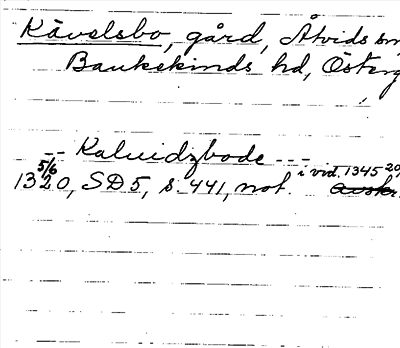 Kävelsbo, gård, Åtvids sn
Bankekinds hd, Österg
-- Kaluidzbode ---
i vid. 1345 20/
13 5/6 20, SD 5, s. 441, not. Avskr.